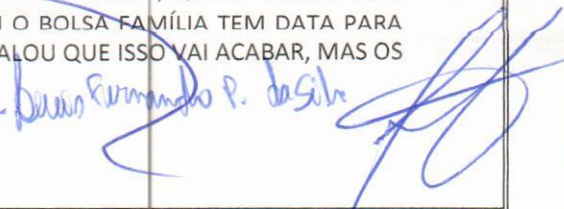 O BOLSA FAMÍLIA TEM DATA PARA
ALOU QUE ISSO VAI ACABAR, MAS OS
Fernando P. da Silva